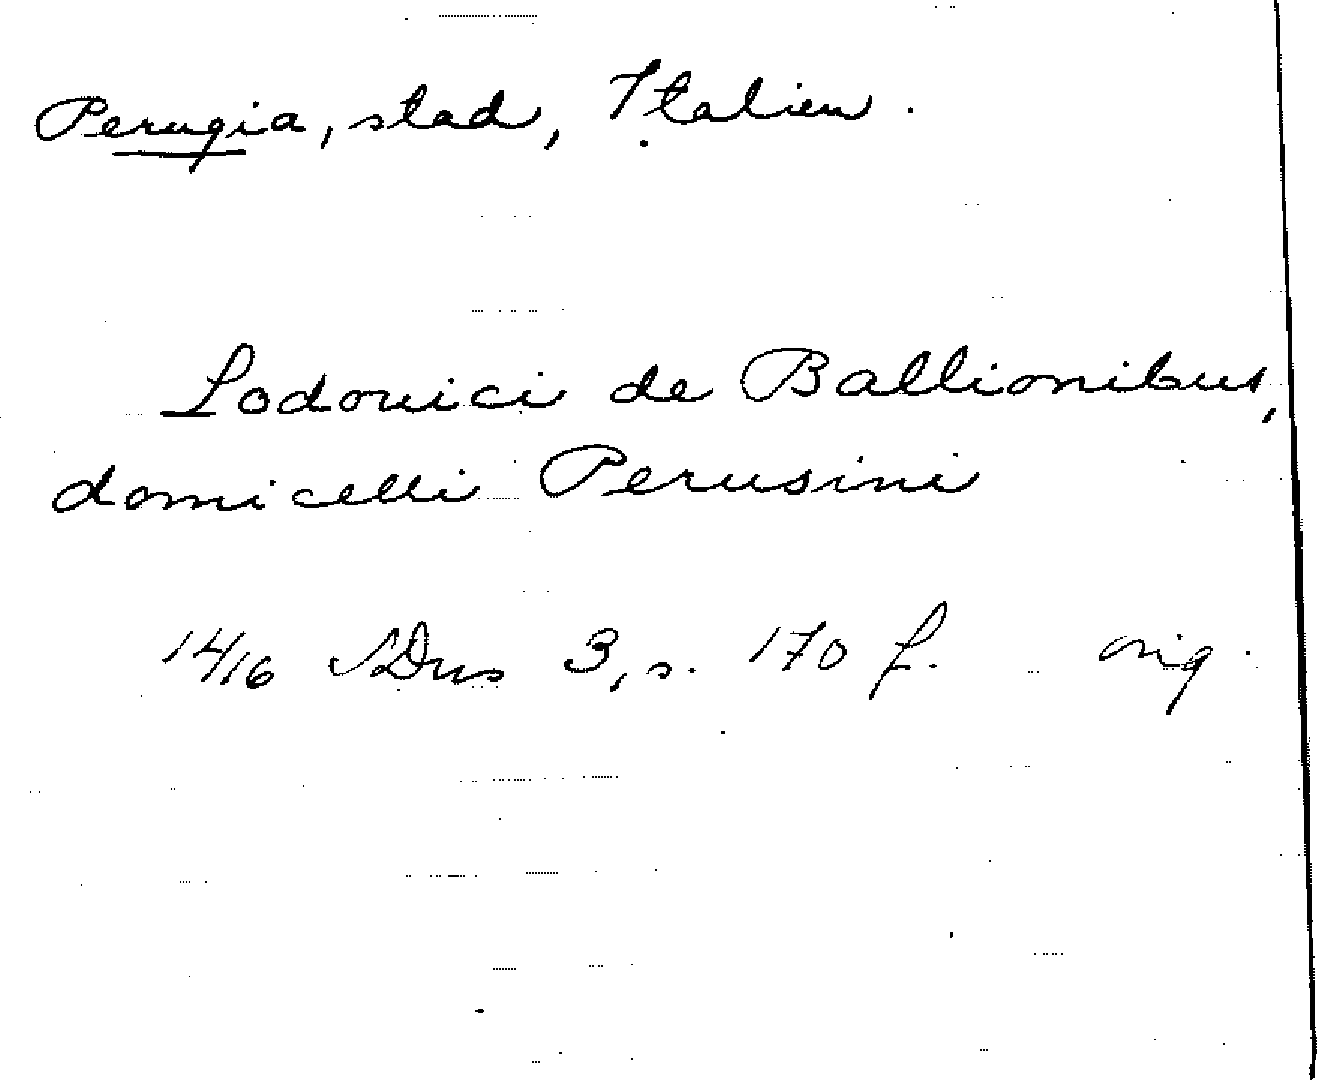 Perugia, stad, Italien.
Lodovici de Ballionibus,
domicelli Perusini
1416 SDns 3, s. 170 f. orig.